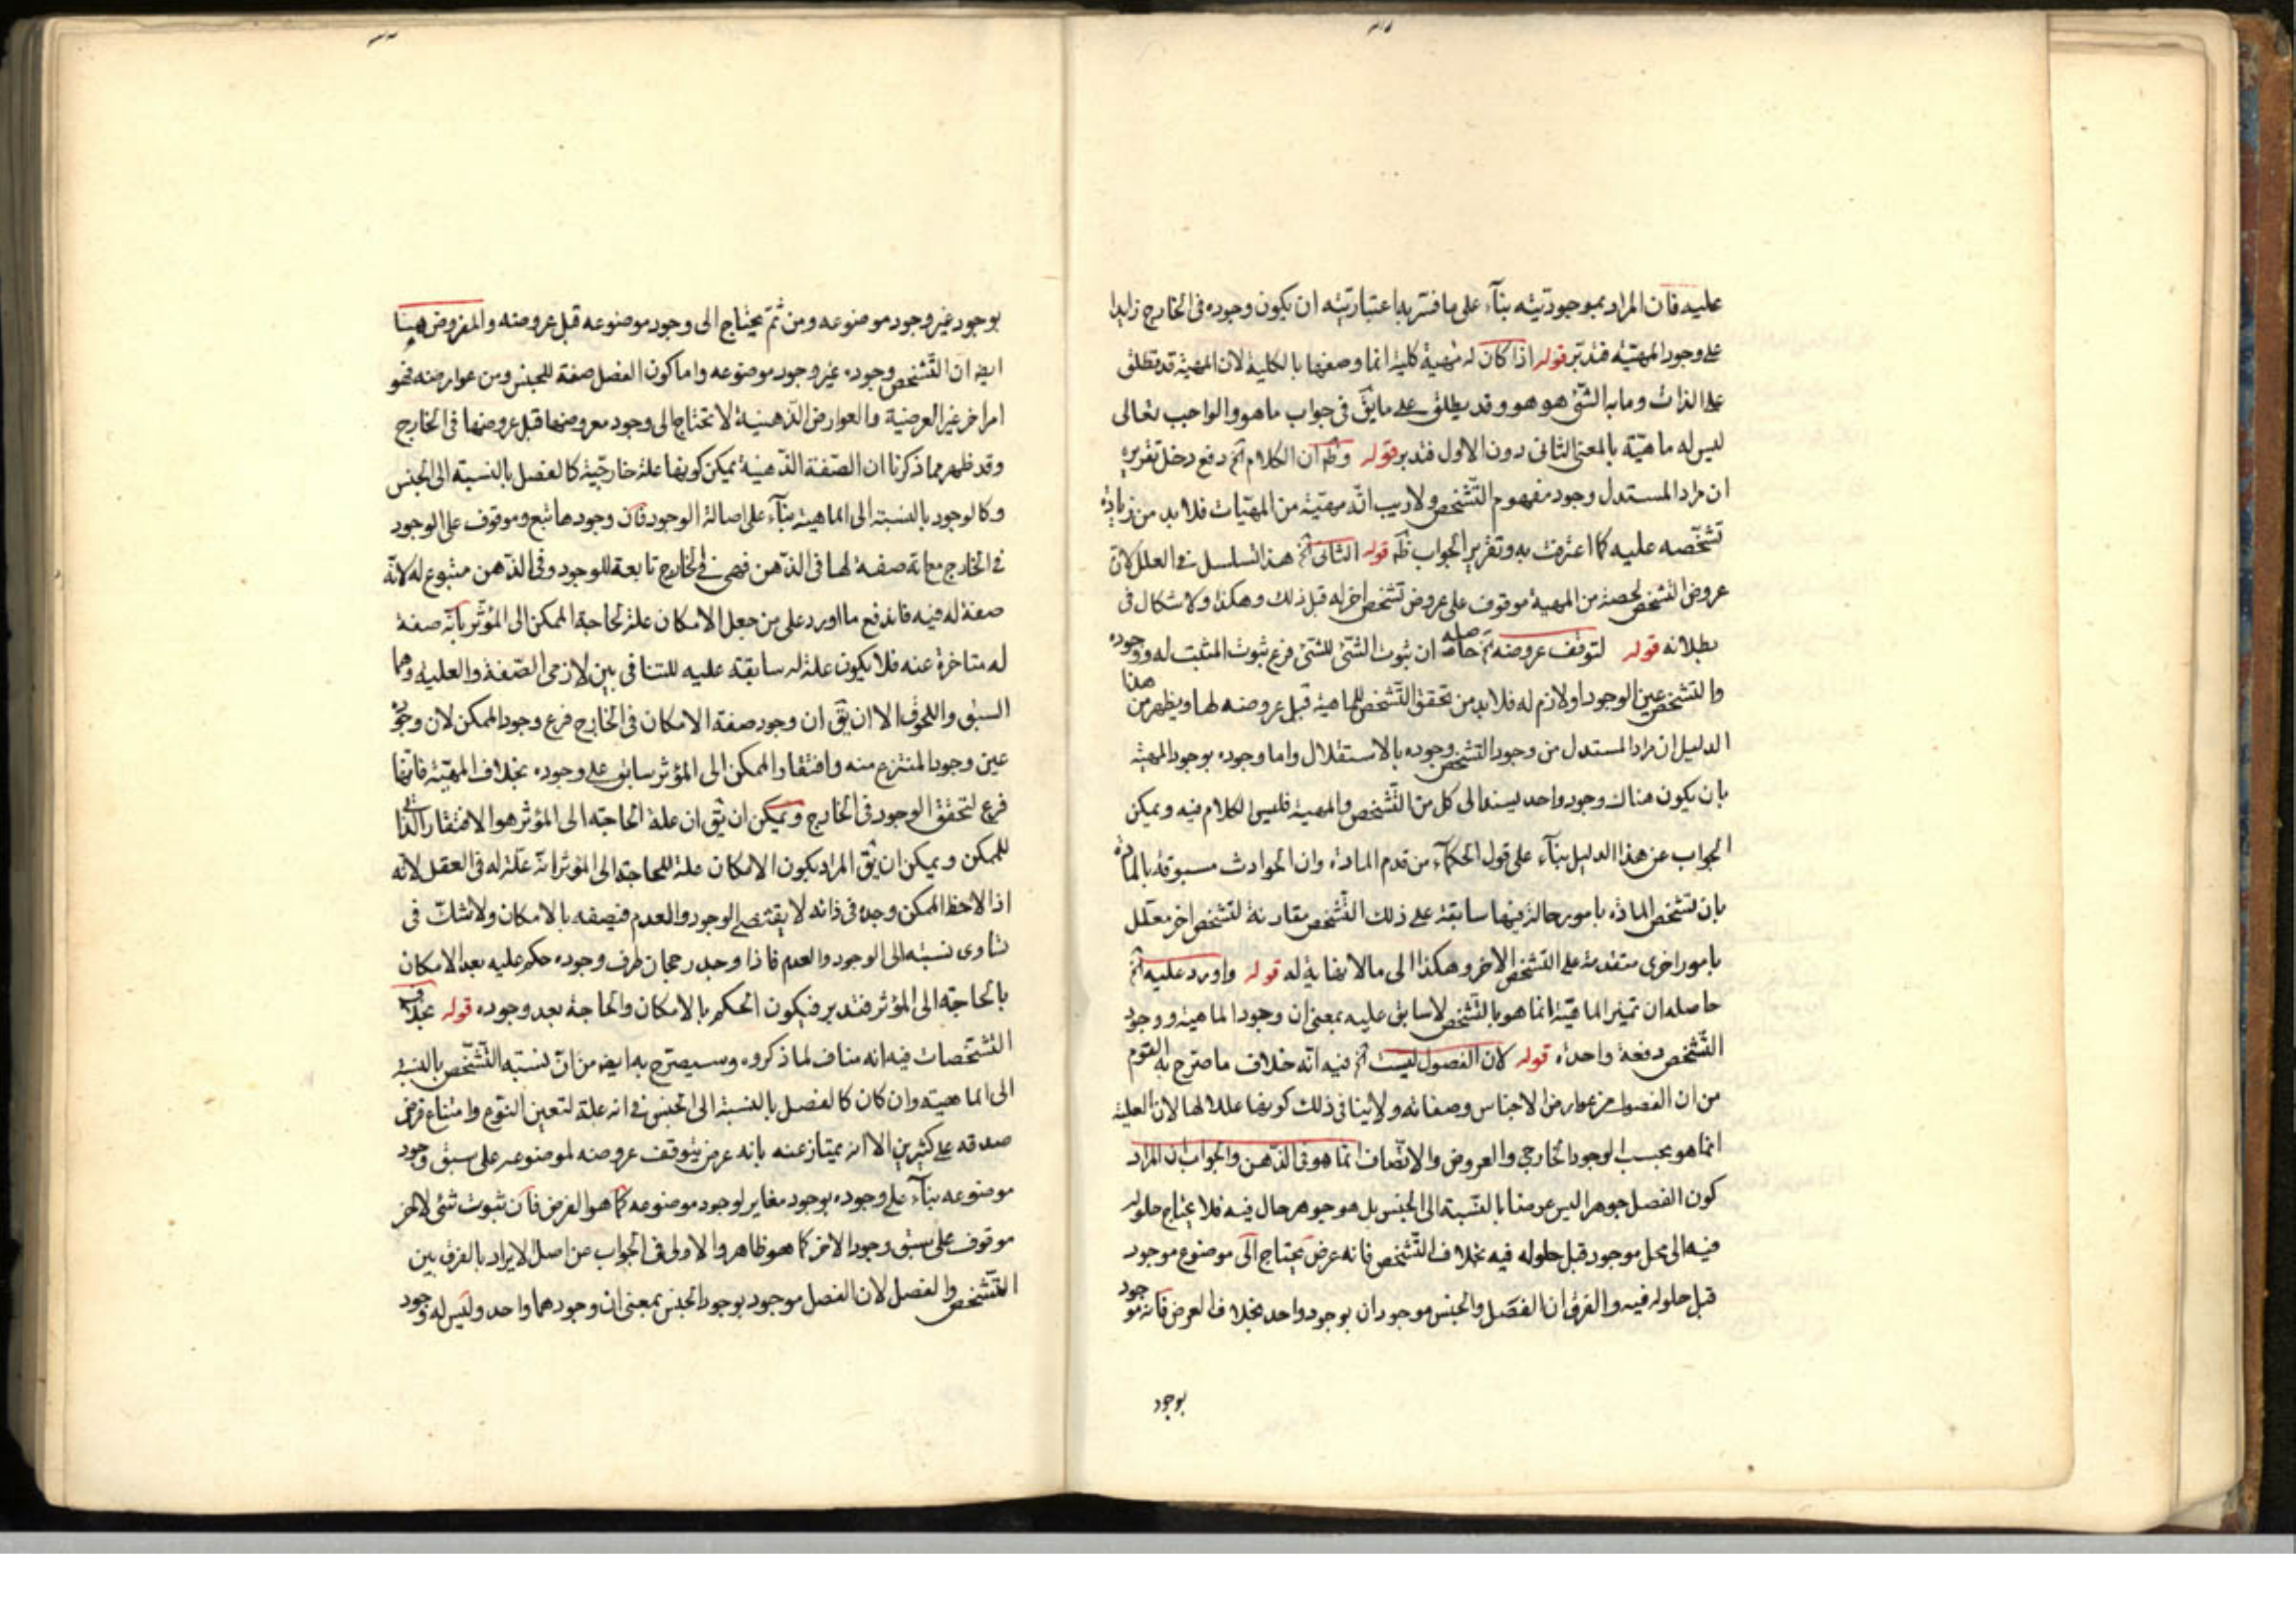 عليه فان المراد بموجوديته بناء على ما فسر به اعتباريته ان يكون وجوده فى الخارج زايدا
على وجود المهية فتدبر قوله اذا كان له مهية كلية انما وصفها بالكلية لان المهية قد تطلق
على الذات وما به الشئ هو هو وقد يطلق على ما يق فى جواب ما هو والواجب تعالى
ليس له ماهية بالمعنى الثانى دون الاول فتدبر قوله وظ ان الكلام آه دفع دخل تقريره
ان مراد المستدل وجود مفهوم التشخص ولا ريب انه مهية من المهيات فلا بد من زيادة
تشخصه عليه كما اعترفت به وتقرير الجواب ظ قوله الثانى آه هذا التسلسل فى العلل لان
عروض التشخص لحصة من المهية موقوف على عروض تشخص اخر له قبل ذلك وهكذا ولا اشكال فى
بطلانه قوله لتوقف عروضه آه حاصله ان ثبوت الشئ للشئ فرع ثبوت المثبت له ووجوده
والتشخص عين الوجود او لازم له فلا بد من تحقق التشخص للماهية قبل عروضه لها ويظهر من هذا
الدليل ان مراد المستدل من وجود التشخص وجوده بالاستقلال واما وجوده بوجود المهية
بان يكون هناك وجود واحد يستند الى كل من التشخص والمهية فليس الكلام فيه ويمكن
الجواب عن هذا الدليل بناء على قول الحكماء من قدم المادة وان الحوادث مسبوقة بالمادة
بان تشخص المادة بامور حالة فيها سابقة على ذلك التشخص مقارنة لتشخص اخر معلل
بامور اخرى متقدمة على التشخص الاخر وهكذا الى ما لا نهاية له قوله واورد عليه آه
حاصله ان تميز الماهية انما هو بالتشخص لا سابق عليه بمعنى ان وجود الماهية ووجود
التشخص دفعة واحدة قوله لان الفصول ليست آه فيه انه خلاف ما صرح به القوم
من ان الفصول من عوارض الاجناس وصفاته ولا ينافى ذلك كونها عللا لها لان العلية
انما هو بحسب الوجود الخارجى والعروض والاتصاف انما هو فى الذهن والجواب ان المراد
كون الفصل جوهرا ليس عرضا بالنسبة الى الجنس بل هو جوهر حال فيه فلا يحتاج حلوله
فيه الى محل موجود قبل حلوله فيه بخلاف التشخص فانه عرض يحتاج الى موضوع موجود
قبل حلوله فيه والفرق ان الفصل والجنس موجودان بوجود واحد بخلاف العرض فانه موجود
بوجود
بوجود غير وجود موضوعه ومن ثم يحتاج الى وجود موضوعه قبل عروضه والمفروض هيهنا
ايضا ان التشخص وجوده غير وجود موضوعه واما كون الفصل صفة للجنس ومن عوارضه فهو
امر اخر غير العرضية والعوارض الذهنية لا تحتاج الى وجود معروضها قبل عروضها فى الخارج
وقد ظهر مما ذكرنا ان الصفة الذهنية يمكن كونها علة خارجية كالفصل بالنسبة الى الجنس
وكالوجود بالنسبة الى الماهية بناء على اصالة الوجود فان وجودها تبع وموقوف على الوجود
فى الخارج مع انه صفة لها فى الذهن فهى فى الخارج تابعة للوجود وفى الذهن متبوع له لانه
صفة له فيه فاندفع ما اورد على من جعل الامكان علة لحاجة الممكن الى المؤثر بانه صفة
له متاخرة عنه فلا يكون علة له سابقة عليه للتنافى بين لازمى الصفة والعلية وهما
السبق واللحوق الا ان يق ان وجود صفة الامكان فى الخارج فرع وجود الممكن لان وجوده
عين وجود المنتزع منه وافتقار الممكن الى المؤثر سابق على وجوده بخلاف المهية فانها
فرع لتحقق الوجود فى الخارج ويمكن ان يق ان علة الحاجة الى المؤثر هو الافتقار الذاتى
للممكن ويمكن ان يق المراد بكون الامكان علة للحاجة الى المؤثر انه علة له فى العقل لانه
اذا لاحظ الممكن وجده فى ذاته لا يقتضى الوجود والعدم فيصفه بالامكان ولا شك فى
تساوى نسبته الى الوجود والعدم فاذا وجد رجحان طرف وجوده حكم عليه بعد الامكان
بالحاجة الى المؤثر فتدبر فيكون الحكم بالامكان والحاجة بعد وجوده قوله بخلاف
التشخصات فيه انه مناف لما ذكروه وسيصرح به ايضا من ان نسبة التشخص بالنسبة
الى الماهية وان كان كالفصل بالنسبة الى الجنس فى انه علة لتعين النوع وامتناع فرض
صدقه على كثيرين الا انه يمتاز عنه بانه عرض يتوقف عروضه لموضوعه على سبق وجود
موضوعه بناء على وجوده بوجود مغاير لوجود موضوعه كما هو الفرض فان ثبوت شئ لاخر
موقوف على سبق وجود الاخر كما هو ظاهر والاولى فى الجواب عن اصل الايراد بالفرق بين
التشخص والفصل لان الفصل موجود بوجود الجنس بمعنى ان وجودهما واحد وليس له وجود